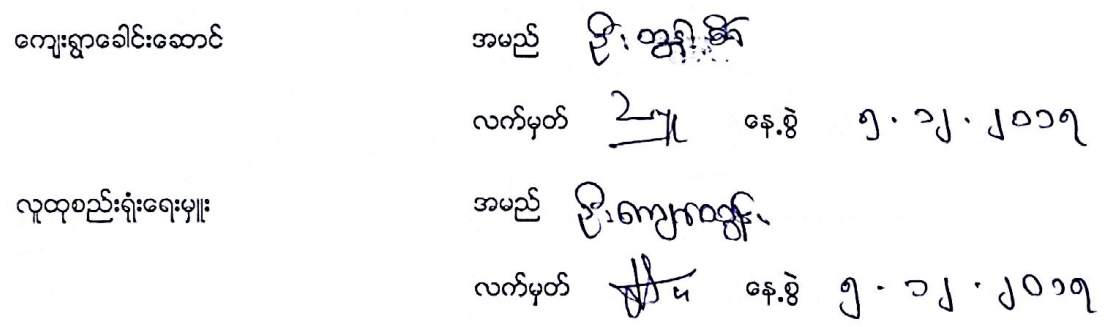 ကျေးရွာခေါင်းဆောင် အမည် ဦး
လက်မှတ် နေ့စွဲ ၅.၁၂.၂၀၁၇
လူထုစည်းရုံးရေးမှူး အမည် ဦးကျော်ထွန်း
လက်မှတ် နေ့စွဲ ၅.၁၂.၂၀၁၇